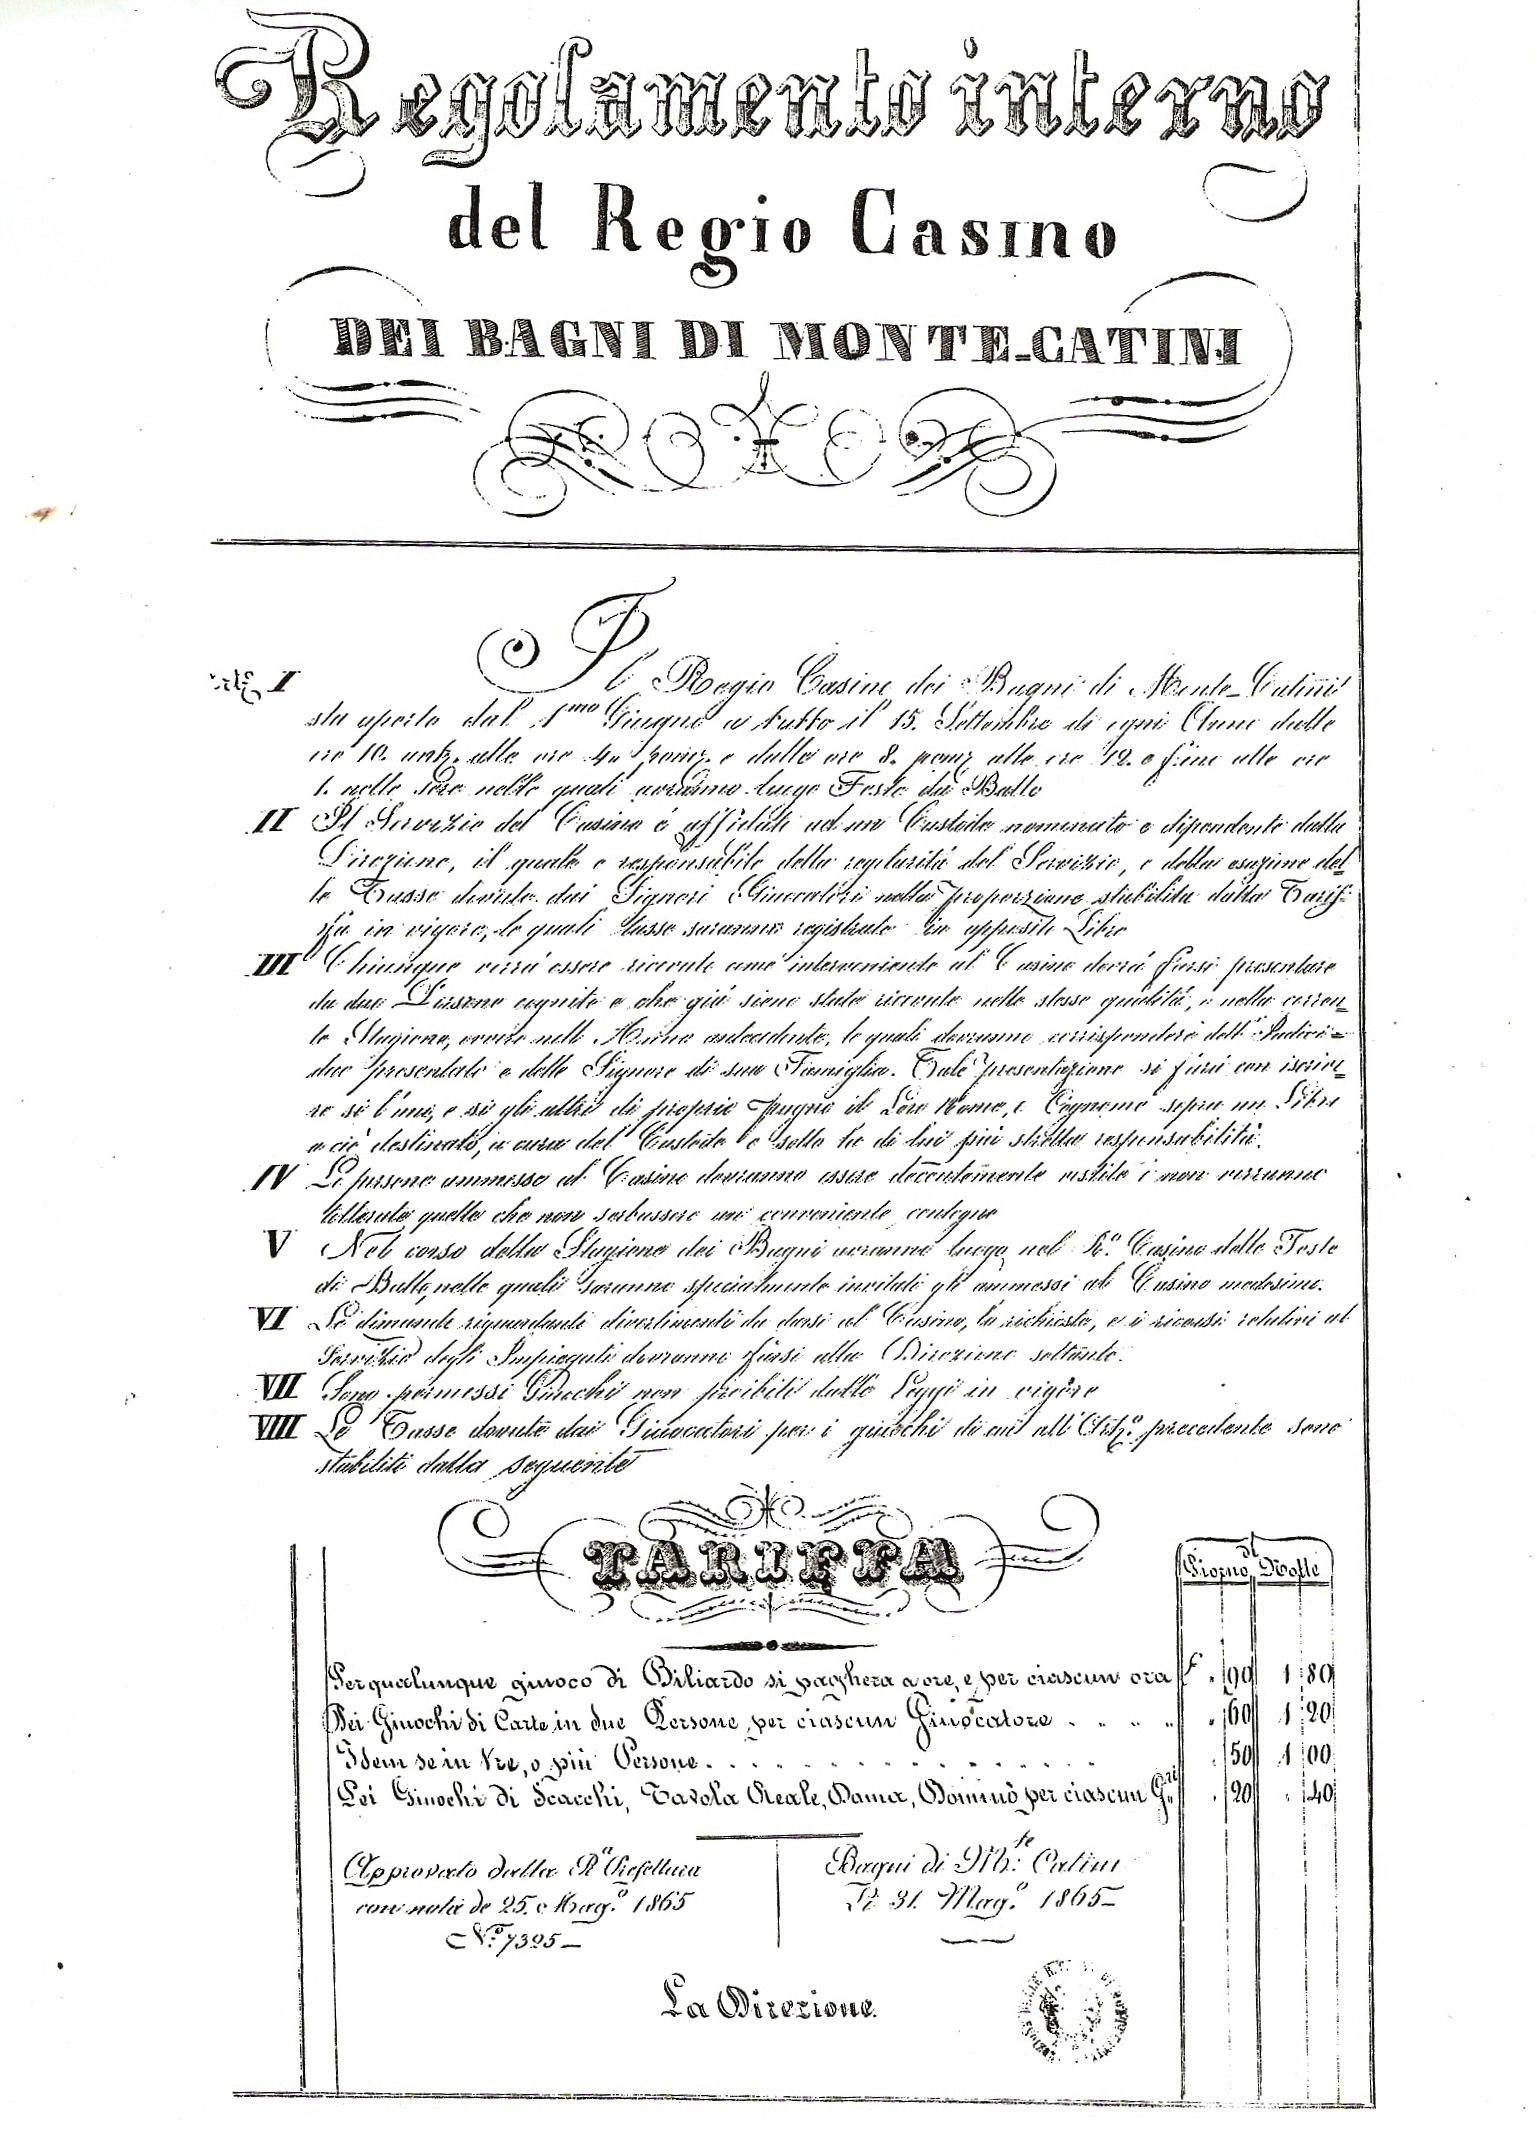 Regolamento interno
del Regio Casino
DEI BAGNI DI MONTE-CATINI
I Il Regio Casino dei Bagni di Monte-Catini
sta aperto dal 1.mo Giugno a tutto il 15. Settembre di ogni Anno dalle
ore 10. antz. alle ore 4. pomz. e dalle ore 8. pomz. alle ore 12. e fino alle ore
1. nelle sere nelle quali avranno luogo Feste da Ballo
II Il Servizio del Casino è affidato ad un Custode nominato e dipendente dalla
Direzione, il quale e responsabile della regolarità del Servizio, e della esazione del-
le Tasse dovute dai Signori Giuocatori nella proporzione stabilita dalla Tarif-
fa in vigore, le quali tasse saranno registrate in apposito Libro
III Chiunque vorrà essere ricevuto come interveniente al Casino dovrà farsi presentare
da due Persone cognite e che già sieno state ricevute nella stessa qualità, o nella corren-
te Stagione, ovvero nell' Anno antecedente, le quali dovranno corrispondere dell' Indivi-
duo presentato e delle Signore di sua Famiglia. Tale presentazione si farà con iscrive-
re sì l'uno, e sì gli altri di proprio pugno il Loro Nome, e Cognome sopra un Libro
a ciò destinato, a cura del Custode e sotto la di lui più stretta responsabilità.
IV Le persone ammesse al Casino dovranno essere decentemente vestite e non verranno
tollerate quelle che non serbassero un conveniente contegno
V Nel corso della Stagione dei Bagni avranno luogo nel R.o Casino delle Feste
di Ballo, nelle quali saranno specialmente invitati gli ammessi al Casino medesimo.
VI Le dimande riguardanti divertimenti da darsi al Casino, la richiesta, e i ricorsi relativi al
Servizio degli Impiegati dovranno farsi alla Direzione soltanto.
VII Sono permessi Giuochi non proibiti dalle Leggi in vigore
VIII Le Tasse dovute dai Giuocatori per i giuochi di cui all' Artz.o precedente sono
stabilite dalla seguente
TARIFFA
di
Giorno Notte
Per qualunque giuoco di Biliardo si paghera a ore, e per ciascun ora £ " 90 1 80
Pei Giuochi di Carte in due Persone, per ciascun Giuocatore . . . . " " 60 1 20
Idem se in tre, o più Persone . . . . . . . . . . . . " 50 1 00
Pei Giuochi di Scacchi, Tavola Reale, Dama, Dominò per ciascun G.re " 20 " 40
Approvato dalla R.a Prefettura
con nota de 25. Mag.o 1865
N.o 7325
Bagni di M.te Catini
31. Mag.o 1865
La Direzione.